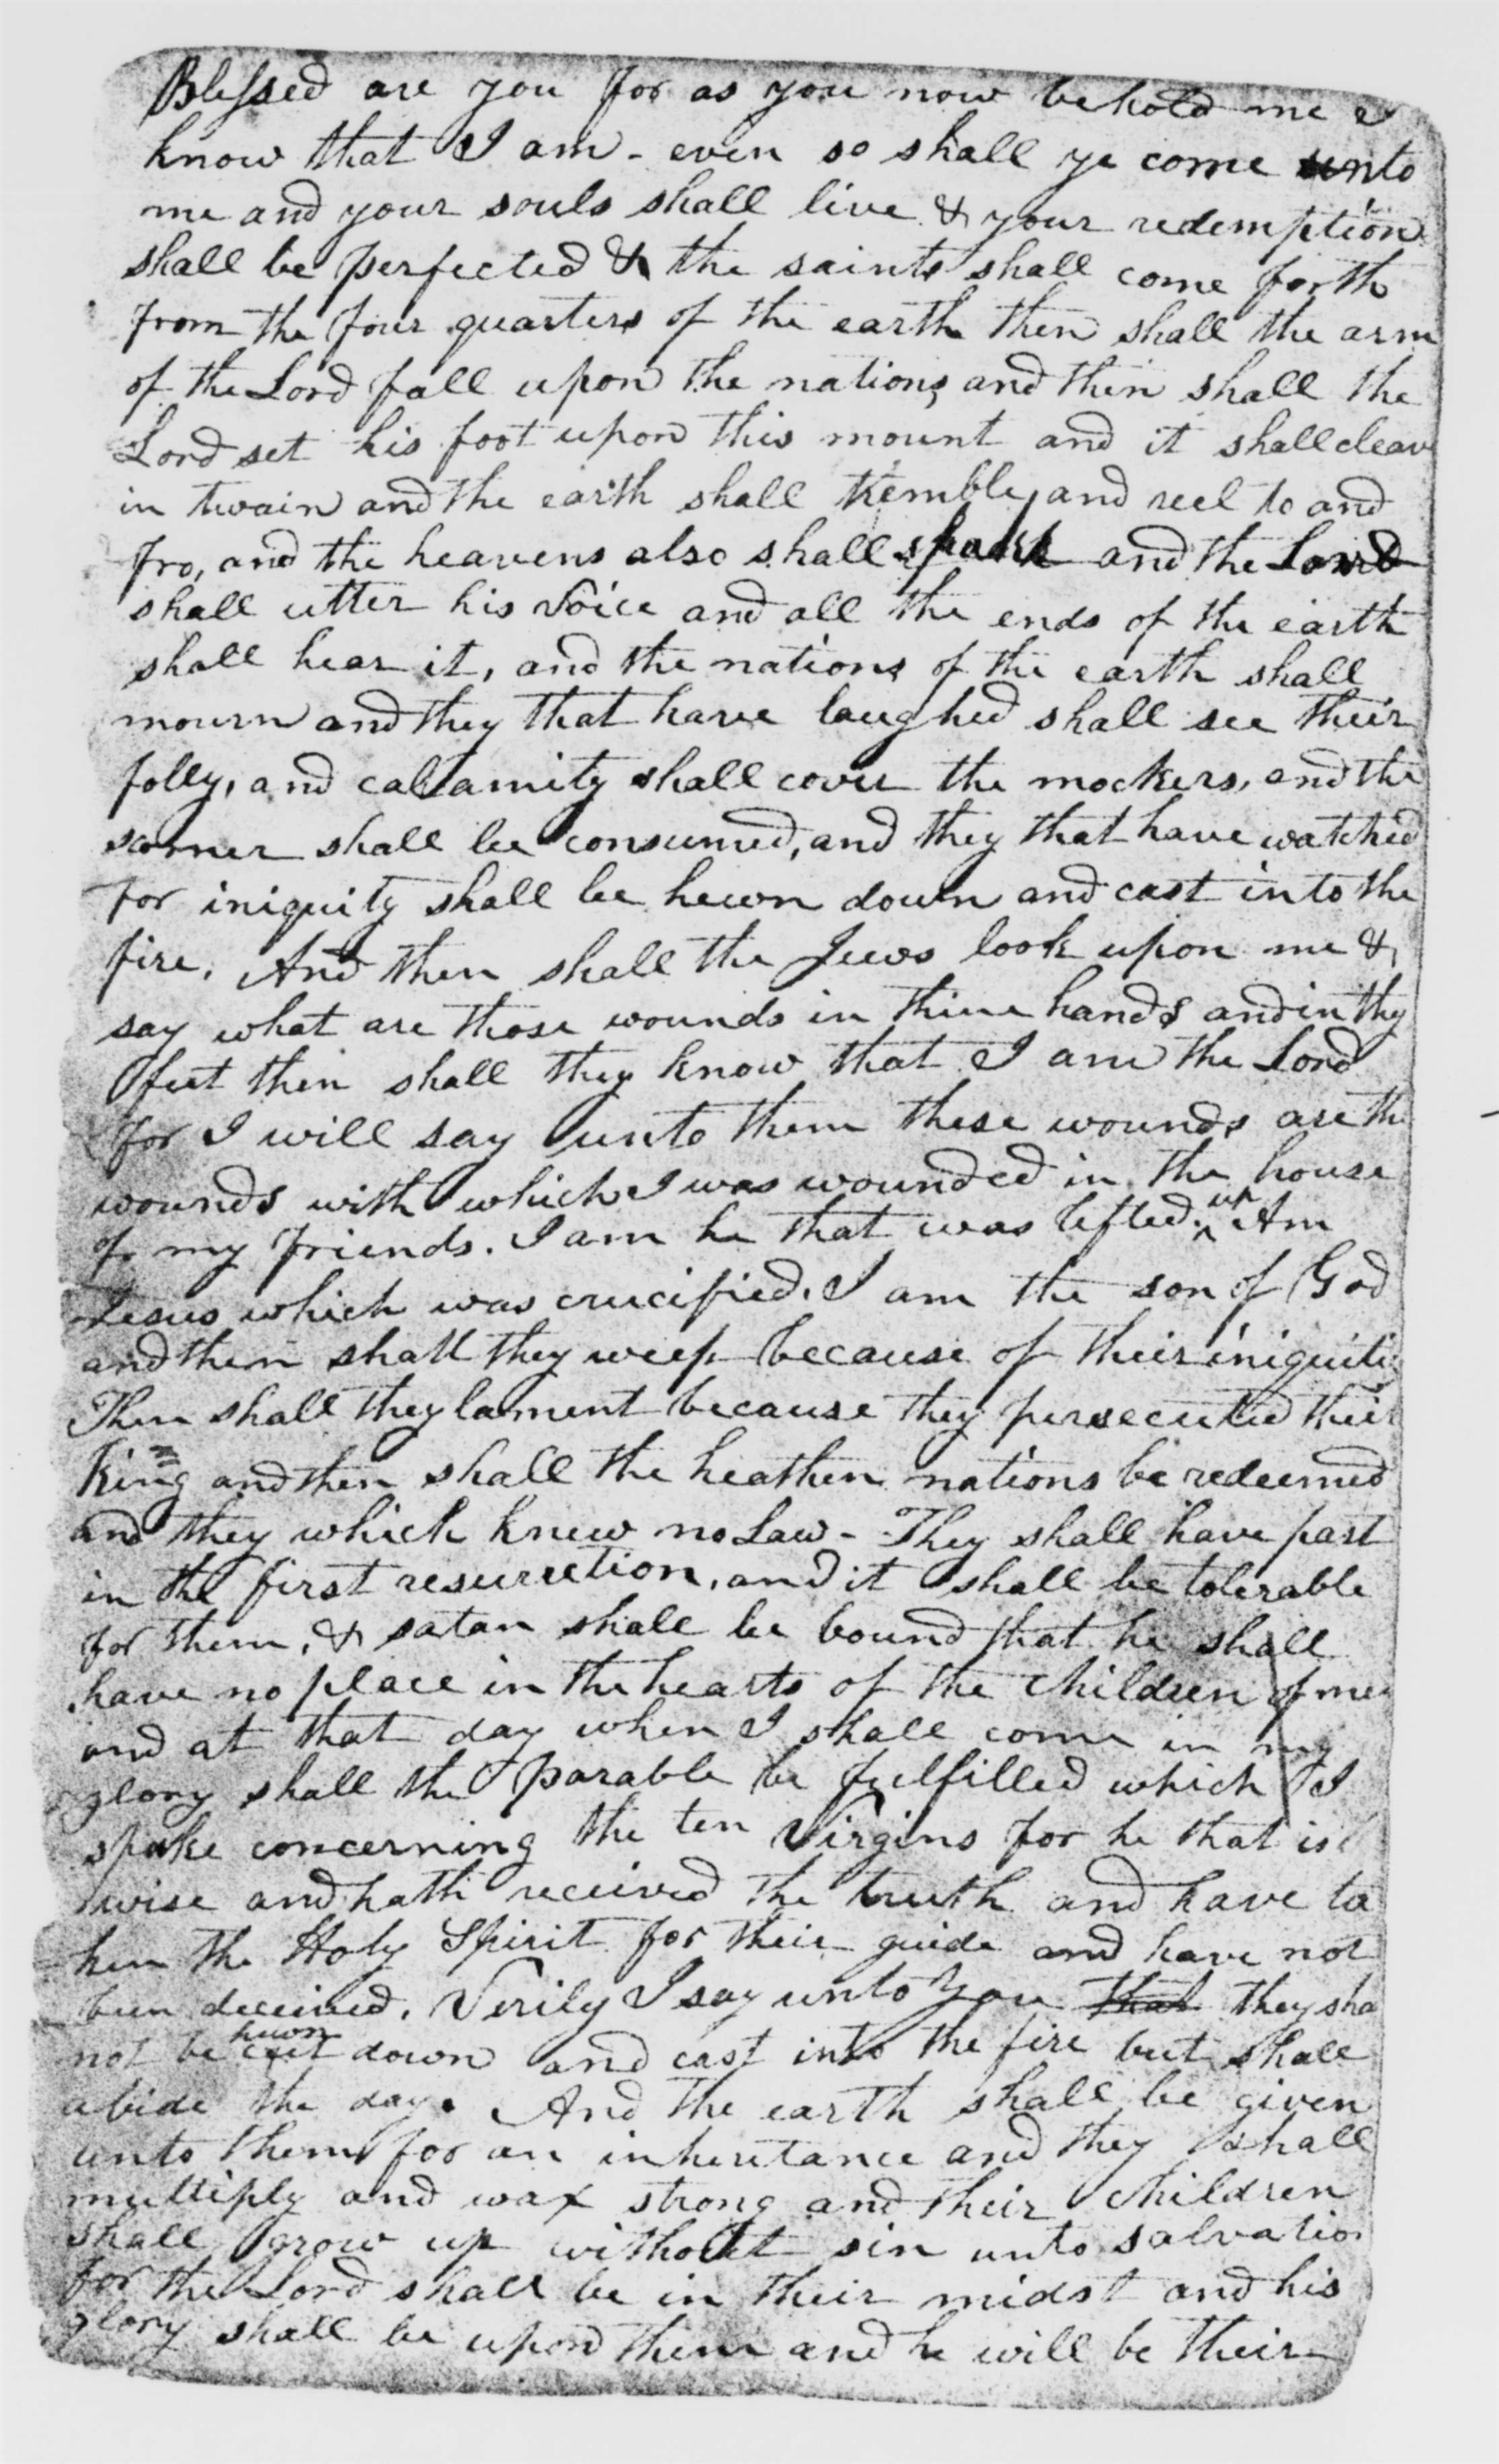 Blessed are you for as you now behold me &
know that I am - even so shall ye come unto
me and your souls shall live & your redemption
shall be perfected & the saints shall come forth
from the four quarters of the earth then shall the arm
of the Lord fall upon the nations and then shall the
Lord set his foot upon this mount and it shall cleav
in twain and the earth shall tremble, and reel to and
fro, and the heavens also shall and the Lord
shall utter his Voice and all the ends of the earth
shall hear it, and the nations of the earth shall
mourn and they that have laughed shall see their
folly, and calamity shall cover the mockers, and the
scorner shall be consumed, and they that have watched
for iniquity shall be hewn down and cast into the
fire. And then shall the Jews look upon me &
say what are those wounds in thine hands and in thy
feet then shall they know that I am the Lord
for I will say unto them these wounds are th
wounds with which I was wounded in the house
of my friends. I am he that was lifted. up Am
Jesus which was crucified. I am the son of God
and then shall they weep because of their iniquitie
Then shall they lament because they persecuted their
King and then shall the heathen nations be redeemed
and they which knew no Law - They shall have part
in the first resurrection, and it shall be tolerable
for them, & satan shall be bound that he shall
have no place in the hearts of the children of men
and at that day when I shall come in my
glory shall the parable be fulfilled which I
spake concerning the ten Virgins for he that is
wise and hath received the truth and have ta
ken the Holy Spirit for their guide and have not
been deceived. Verily I say unto you that they sha
not be cut hewn down and cast into the fire but shall
abide the day. And the earth shall be given
unto them for an inheritance and they shall
multiply and wax strong and their children
shall grow up without sin unto salvation
for the Lord shall be in their midst and his
glory shall be upon them and he will be their